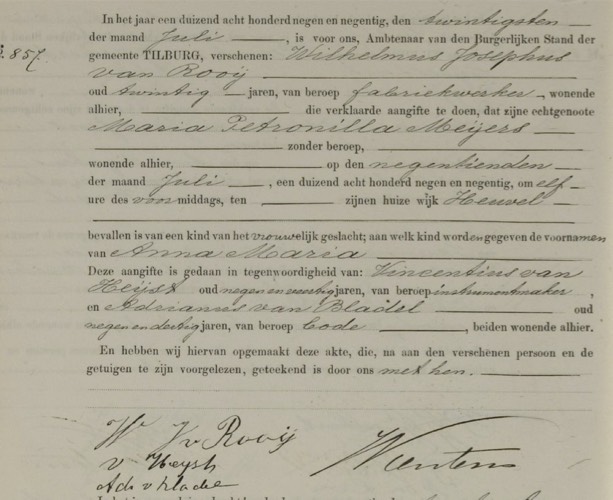 In het jaar een duizend acht honderd negen en negentig, den twintigsten
der maand Juli, is voor ons, Ambtenaar van den Burgerlijken Stand der
857.
gemeente TILBURG, verschenen: Wilhelmus Josephus
van Rooij
oud twintig jaren, van beroep fabriekwerker, wonende
alhier, die verklaarde aangifte te doen, dat zijne echtgenoote
Maria Petronilla Meijers
zonder beroep,
wonende alhier, op den negentienden
der maand Juli, een duizend acht honderd negen en negentig, om elf
ure des voormiddags, ten zijnen huize wijk Heuvel
bevallen is van een kind van het vrouwelijk geslacht; aan welk kind worden gegeven de voornamen
van Anna Maria
Deze aangifte is gedaan in tegenwoordigheid van: Vincentius van
Heijst oud negen en veertig jaren, van beroep instrumentmaker,
en Adrianus van Bladel oud
negen en dertig jaren, van beroep bode, beiden wonende alhier.
En hebben wij hiervan opgemaakt deze akte, die, na aan den verschenen persoon en de
getuigen te zijn voorgelezen, geteekend is door ons met hen.
W V Rooij
v Heyst
Ad v blade